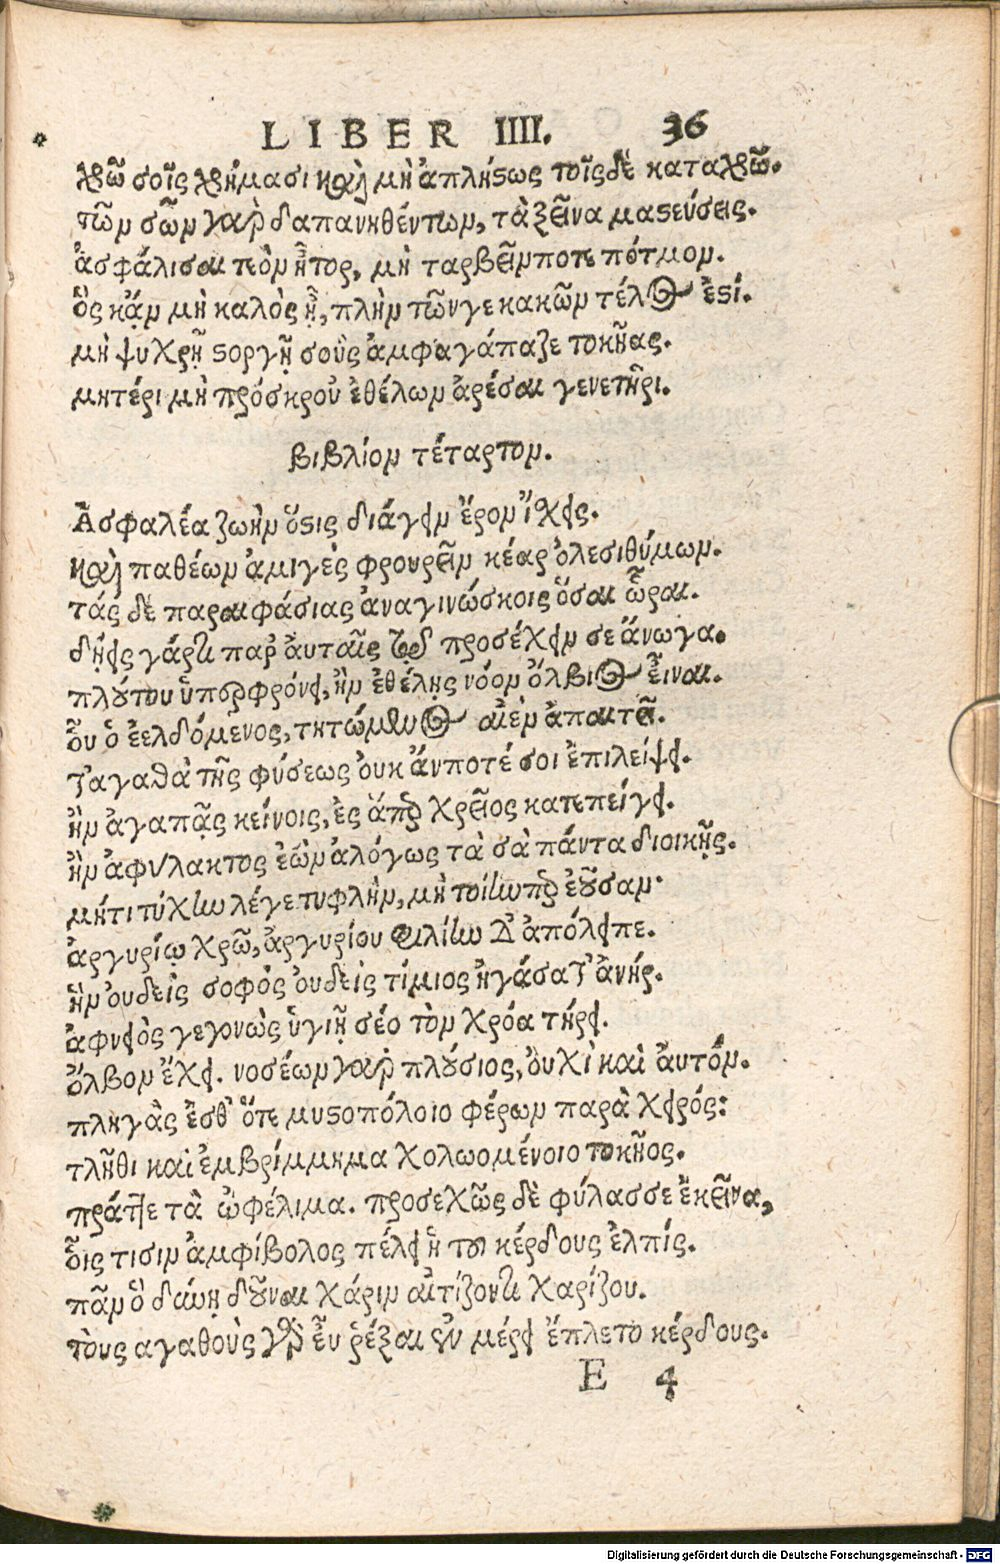 LIBER IIII. 36
χρῶ σοῖς χρήμασι καὶ μὴ ἀπλήςως τοῖςδὲ καταχρῶ.
τῶν σῶν γὰρ δαπανηθέντων, τὰ ξεῖνα μαςεύσεις.
ἀσφάλισαι τεὸν ἦτορ, μὴ ταρβεῖνποτε πότμον.
ὃς κᾄν μὴ καλὸς ᾖ, πλὴν τῶνγε κακῶν τέλος ἐςί.
μὴ ψυχρῇ ςοργῇ σοὺς ἀμφαγάπαζε τοκῆας.
μητέρι μὴ πρόσκρου ἐθέλων ἀρέσαι γενετῆρι.
βιβλίον τέταρτον.
Ἀσφαλέα ζωὴν ὅςις διάγειν ἔρον ἴχεις.
καὶ παθέων ἀμιγὲς φρουρεῖν κέαρ ὀλεσιθύμων.
τάς δὲ παραιφάσιας ἀναγινώσκοις ὅσαι ὧραι.
δήεις γάρτι παρ' ἀυταῖς προσέχειν σε ἄνωγα.
πλούτου ὑπερφρόνει, ἢν ἐθέλῃς νόον ὄλβιος εἶναι.
οὗ ὁ ἐελδόμενος, τητώμενος αἰὲν ἀπαιτεῖ.
τἀγαθὰ τῆς φύσεως ὀυκ ἄνποτέ σοι ἐπιλείψει.
ἢν ἀγαπᾷς κείνοις, ἐς ἅπερ χρεῖος κατεπείγει.
ἢν ἀφύλακτος ἐὼν ἀλόγως τὰ σὰ πάντα διοικῇς.
μήτι τύχην λέγε τυφλὴν, μὴ τοίηνπερ ἐοῦσαν.
ἀργυρίῳ χρῶ, ἀργυρίου φιλίην δ' ἀπόλειπε.
ἣν ὀυδεὶς σοφὸς ὀυδεὶς τίμιος ἠγάσατ' ἀνήρ.
ἀφνειὸς γεγονὼς ὑγιῆ σέο τὸν χρόα τήρει.
ὄλβον ἔχει. νοσέων γὰρ πλούσιος, ὀυχὶ καὶ ἀυτόν.
πληγὰς ἐσθ' ὅτε μυςοπόλοιο φέρων παρὰ χειρός:
τλῆθι καὶ ἐμβρίμμημα χολωομένοιο τοκῆος.
πράττε τὰ ὠφέλιμα. προσεχῶς δὲ φύλασσε ἐκεῖνα,
οἷς τισιν ἀμφίβολος πέλει ἢ του κέρδους ἐλπίς.
πᾶν ὃ δύνῃ δοῦναι χάριν αἰτίζοντι χαρίζου.
τοὺς αγαθοὺς γὰρ εὖ ῥέξαι ἐν μέρει ἔπλετο κέρδους.
E 4
Digitalisierung gefördert durch die Deutsche Forschungsgemeinschaft - DFG